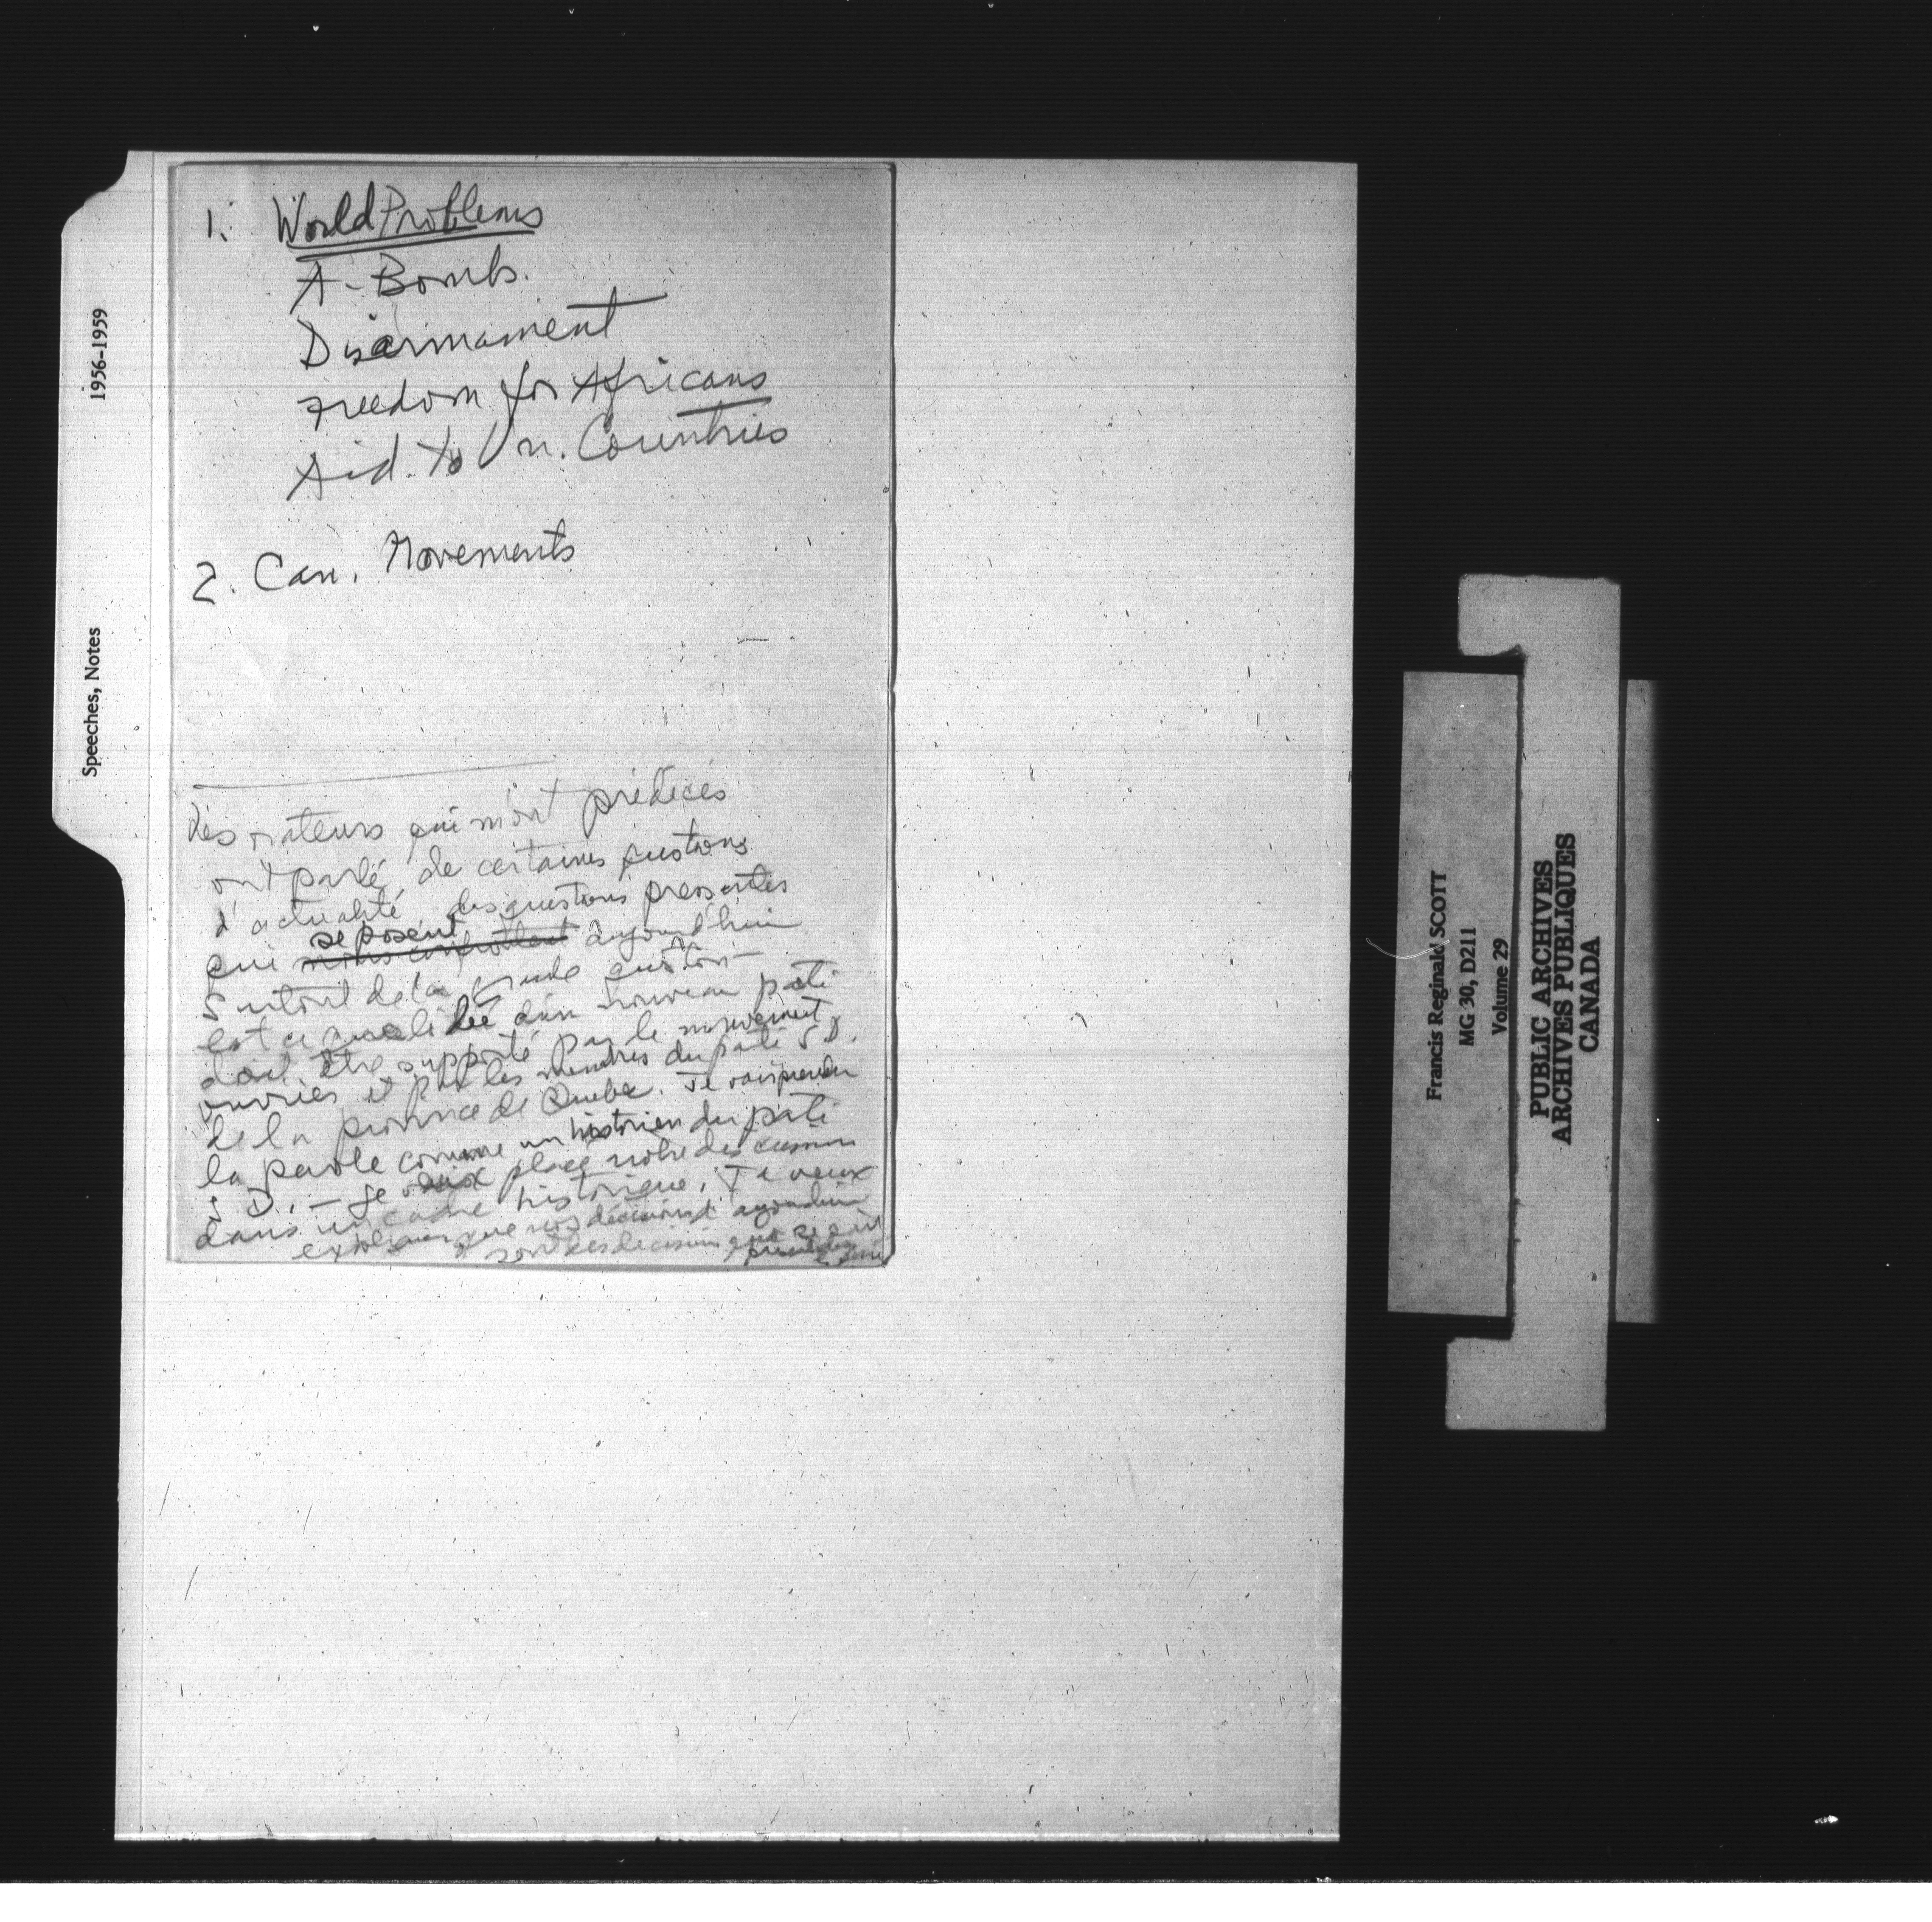 1. World Problems
A-Bomb.
Disarmament
Freedom for Africans
Aid to Un. Countries
2. Can. Movements
Les orateurs qui m'ont précédés
ont parlé de certaines questions
d'actualité, des questions pressantes
se posent
qui nous confrontent aujourd'hui
surtout de la grande question —
est ce que l'idée d'un nouveau parti
doit être supporté par le mouvement
ouvrier et par les membres du parti S D.
de la province de Quebec. Je vais prendre
la parole comme un historien du parti
S D, — je veux placé notre discussion
dans un cadre historique. Je veux
expliquer que nos décisions d'aujourdhui
sont des decisions
1956-1959
Speeches, Notes
Francis Reginald SCOTT
MG 30, D211
Volume 29
PUBLIC ARCHIVES
ARCHIVES PUBLIQUES
CANADA